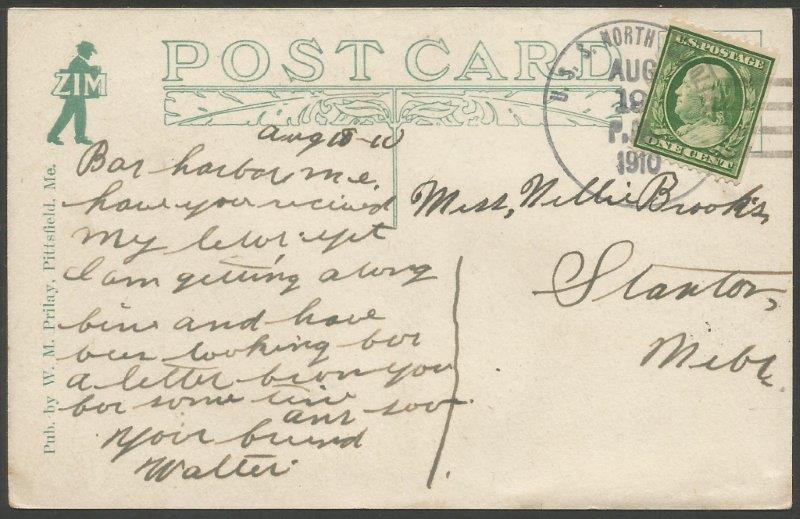 ZIM
POST CARD
U. S. S. NORTH
AUG
19
P.
1910
U.S. POSTAGE
ONE CENT
Aug 18-10
Bar harbor me.
have you recieved
my leter yet
I am getting along
fine and have
been looking for
a letter from you
for some time
ans soon
Your friend
Walter
Miss, Nellie Brooks,
Stanton,
Nebr.
Pub. by W. M. Prilay, Pittsfield, Me.